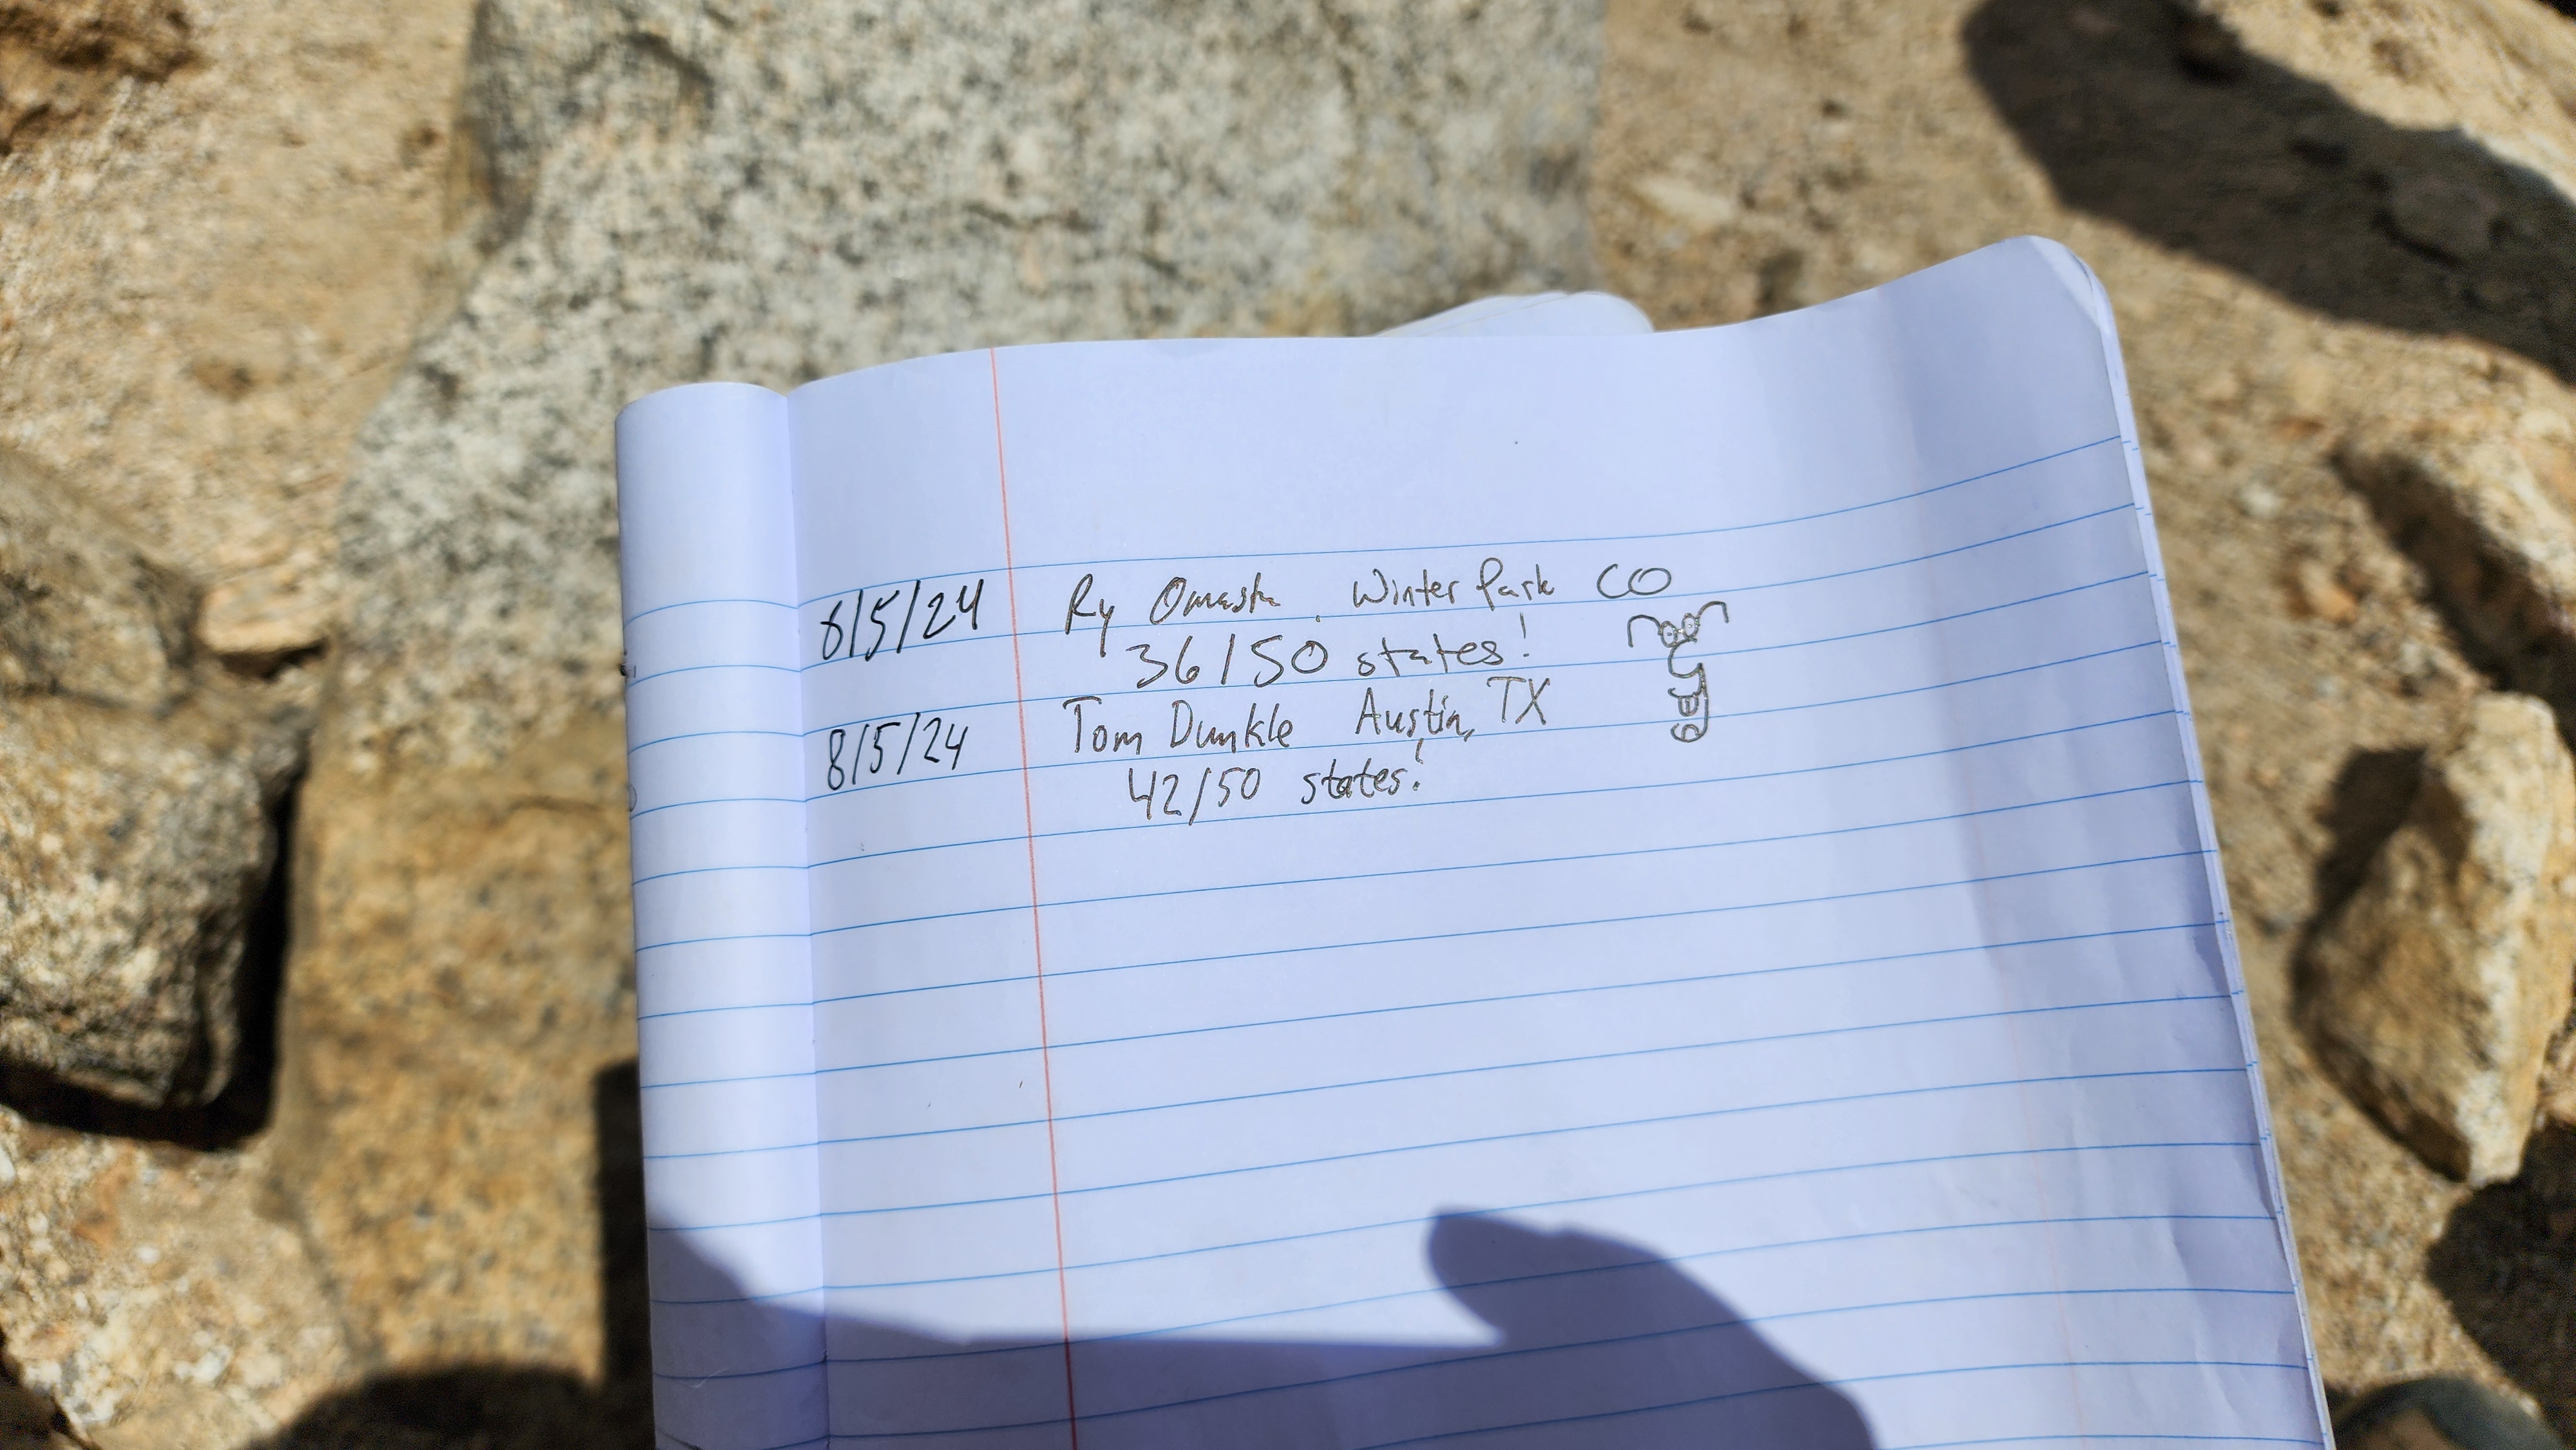 8/5/24 Ry Omasta. Winter Park CO
36/50 states!
8/5/24 Tom Dunkle Austin, TX
42/50 states!